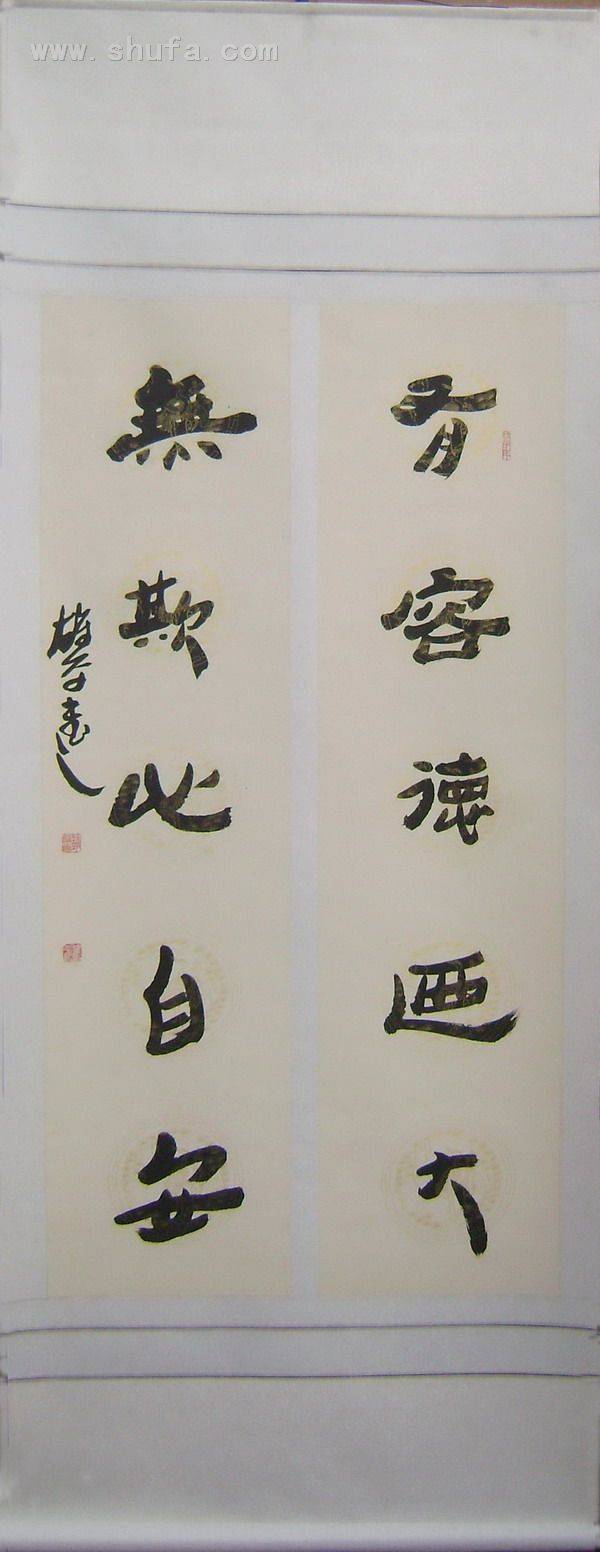 www.shufa.com
有容德迺大
無欺心自安